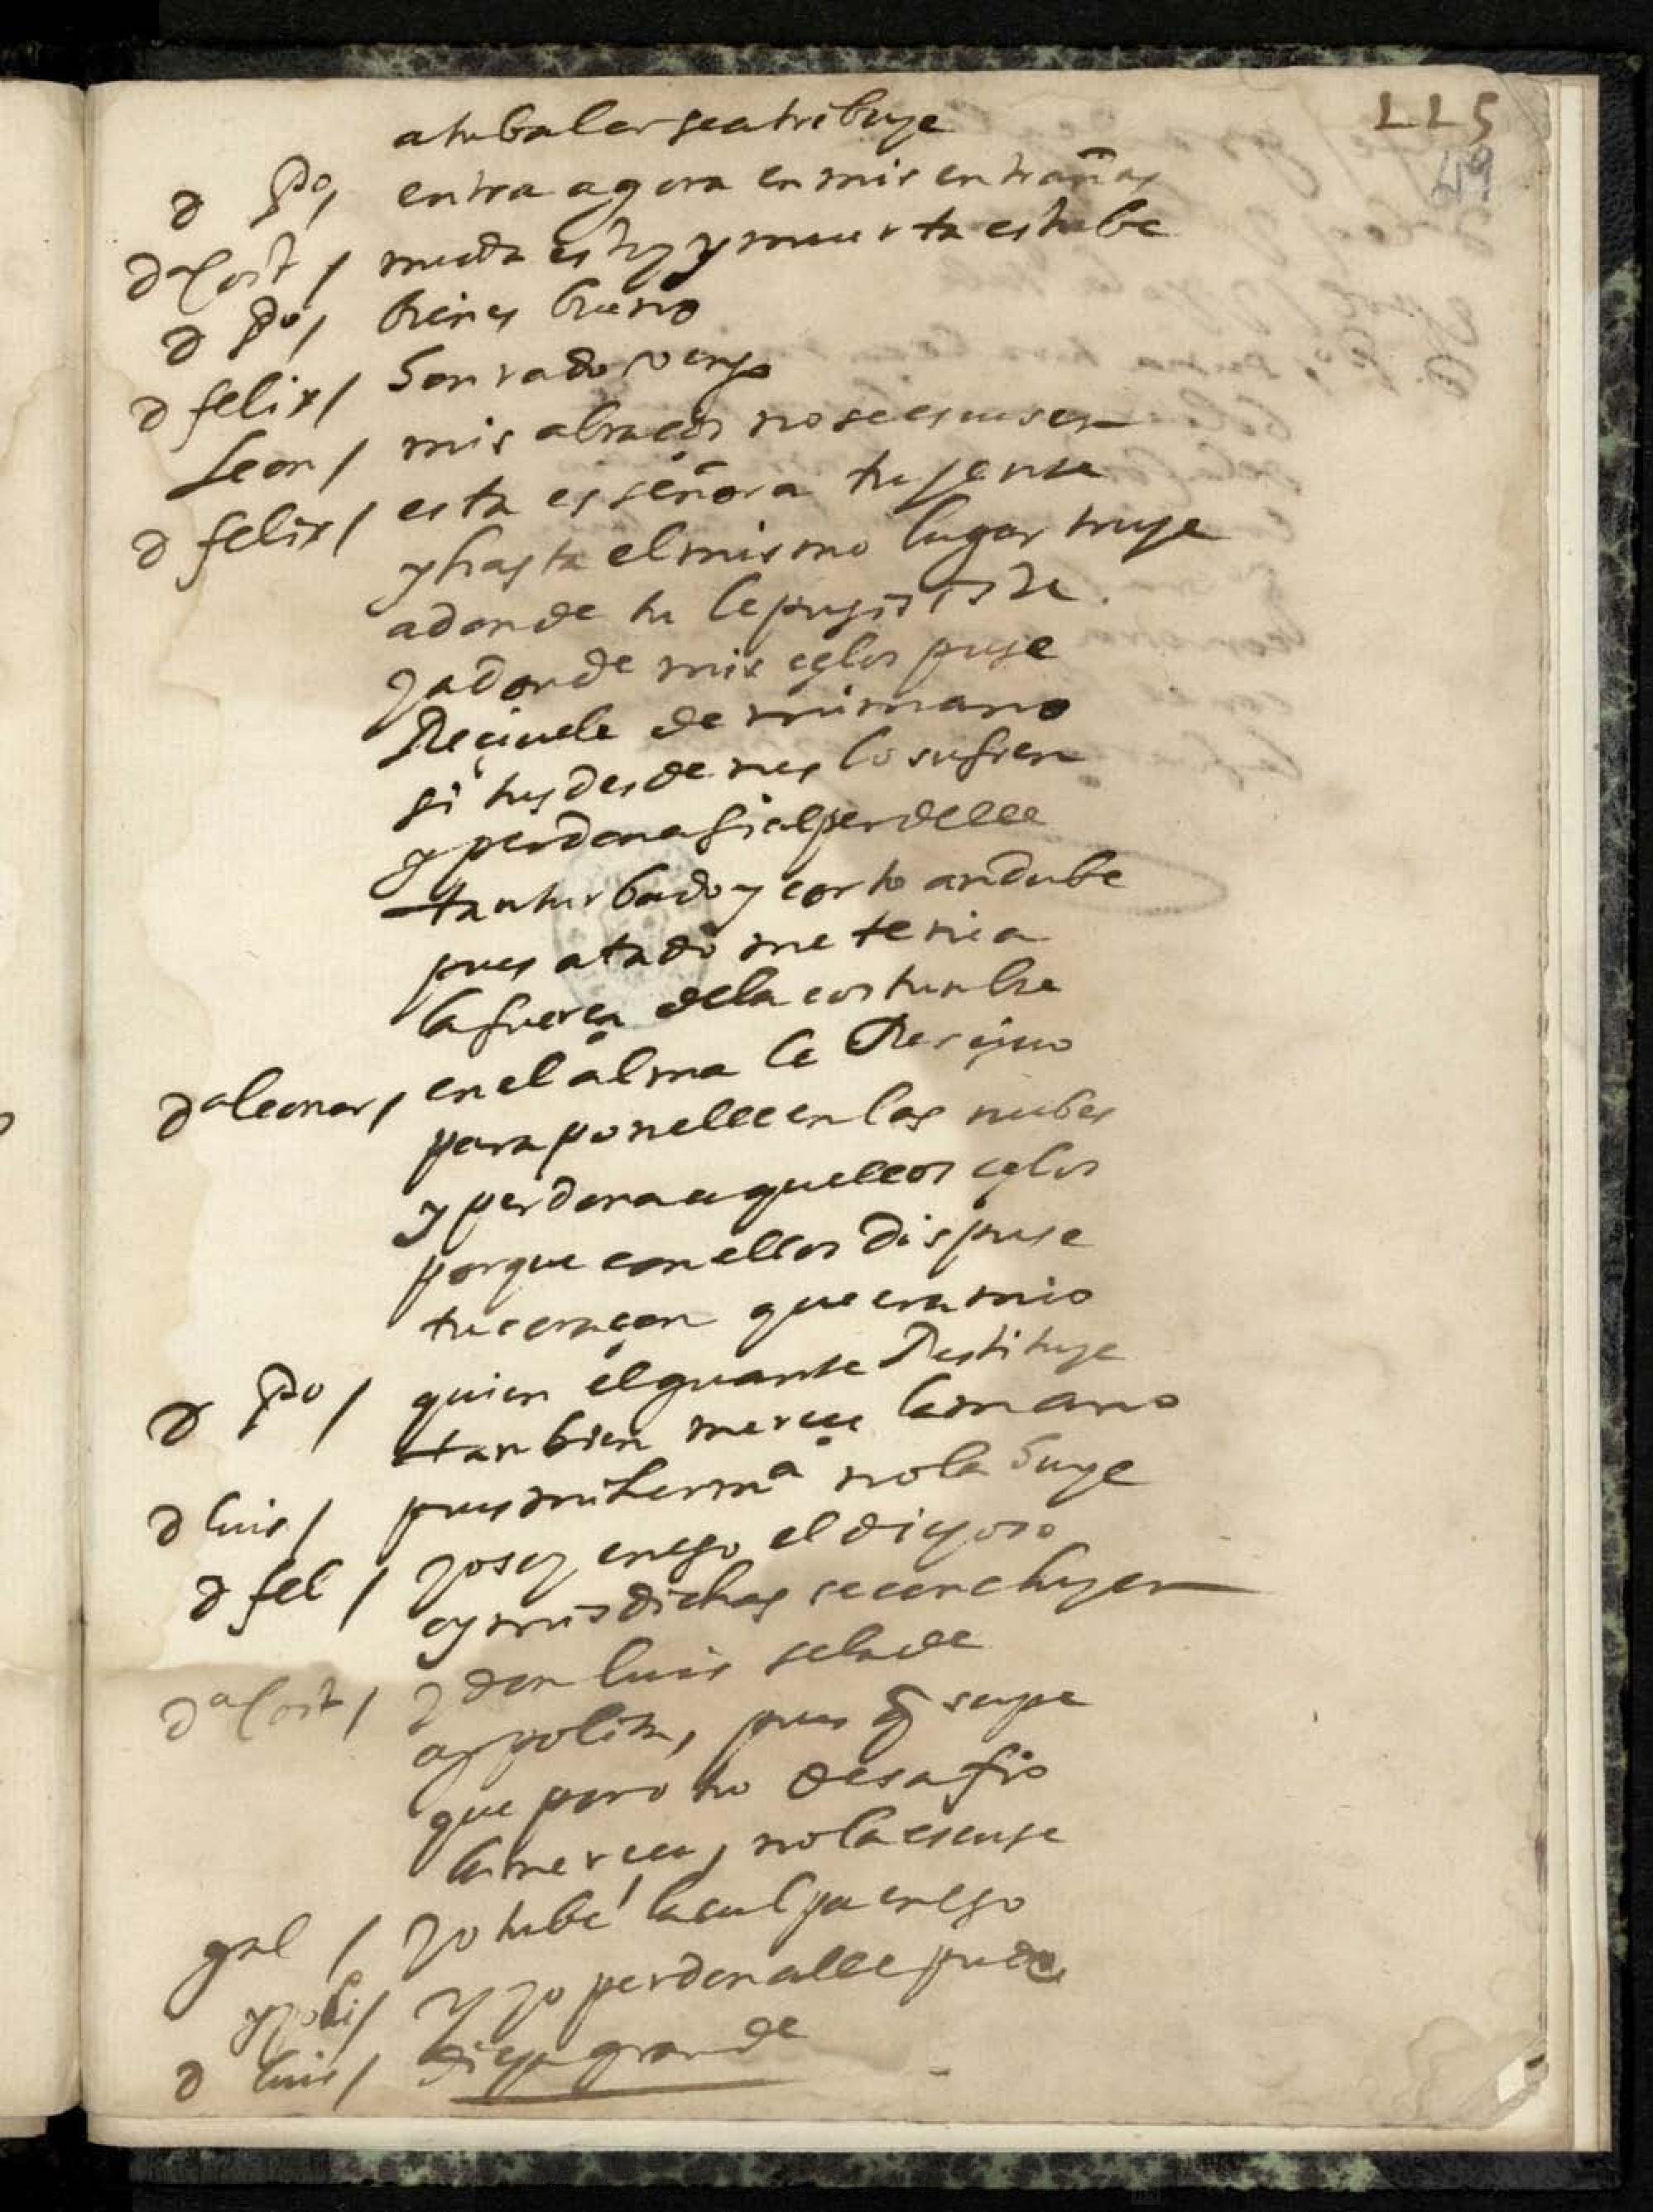 115
49
a tu balor se atribuye
d Po, entra agora en mis entrañas
da Cost / muda estoy y muerta estube
d Po, bienes bueno
d felix / honrado vengo
Leon / mis abraços no se escusen
d felix / esta es señora tu
y hasta el mismo lugar truje
adonde tu le pusiste
y adonde mis çelos puse
Reçiuele de mi mano
si tus desdenes lo sufren
y perdona si al perdelle
tan turbado y corto andube
pues atado me tenia
la fuerça dela costunbre
da leonor, en el alma le Resçiuo
para ponelle en las nubes
y perdona aquellos çelos
porque con ellos dispuse
tu coraçon que era mio
d Po / quien el guante Restituye
tanbien mereçe la mano
d luis / pues mi herma no la huye
d fel / yo soy en eso el dichoso
oy mis dichas se concluyen
da Cost / y don luis se la de
a ypolita, pues q̃ supe
que por tu desafio
la mereçia, no la escuse
gal / yo tube la culpa en eso
ypoli / y yo perdonalle pude
d luis / dicha grande